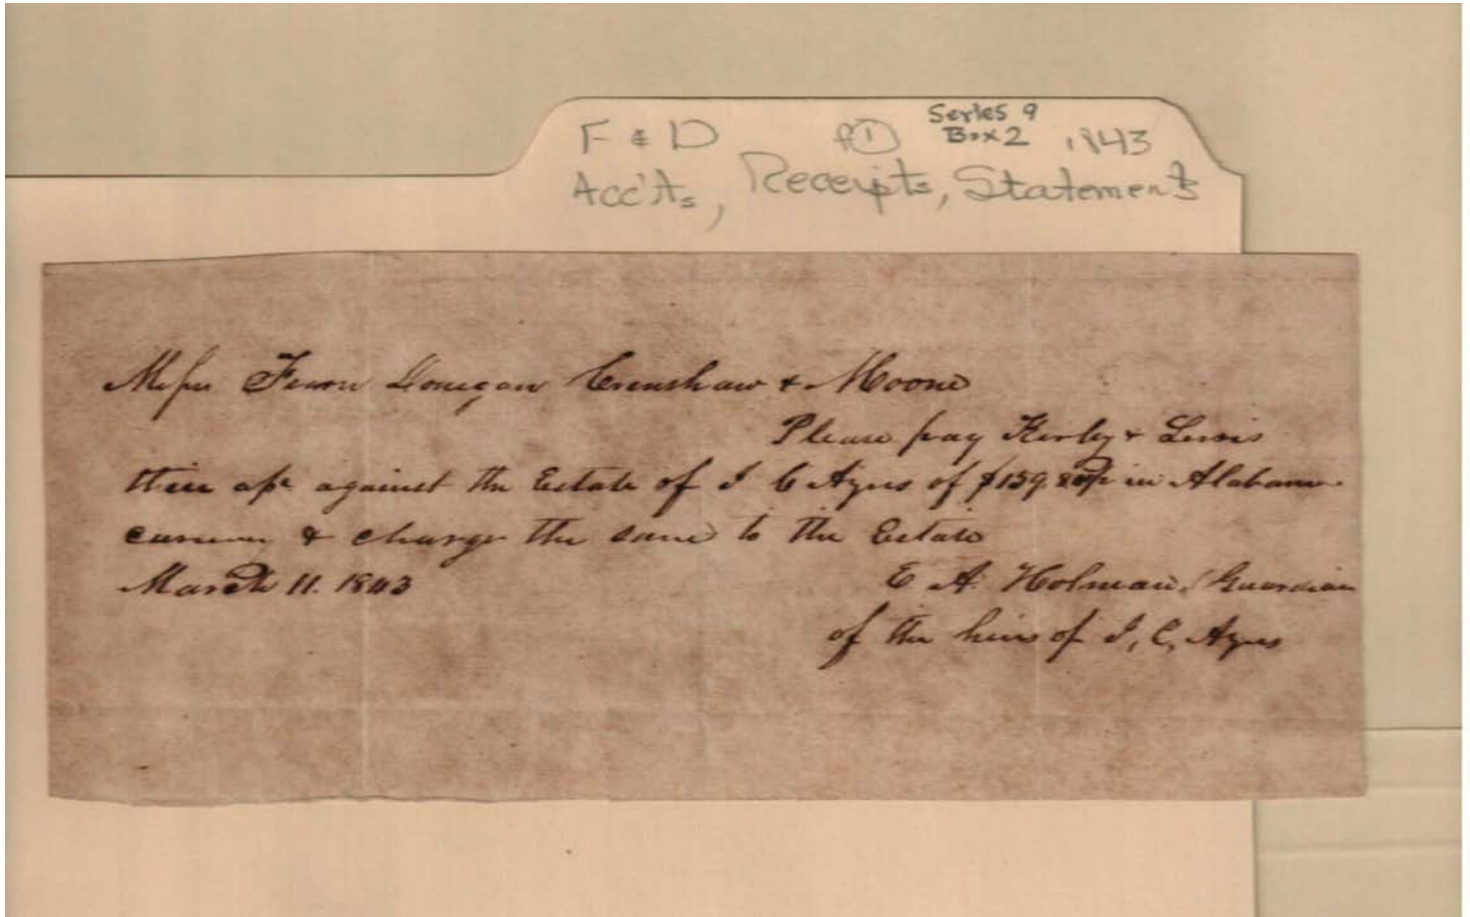 F & D f① Series 9
Box 2 1843
Acc'ts, Receipts, Statements
Messrs Fearn Donegan Crenshaw & Moone
Please pay Kirby & Lewis
their against the Estate of J C Ayres of $159 in Alabama
currency & charge the same to the Estate
March 11. 1843 E A. Holman, Guardian
of the heirs of J, C, Ayres